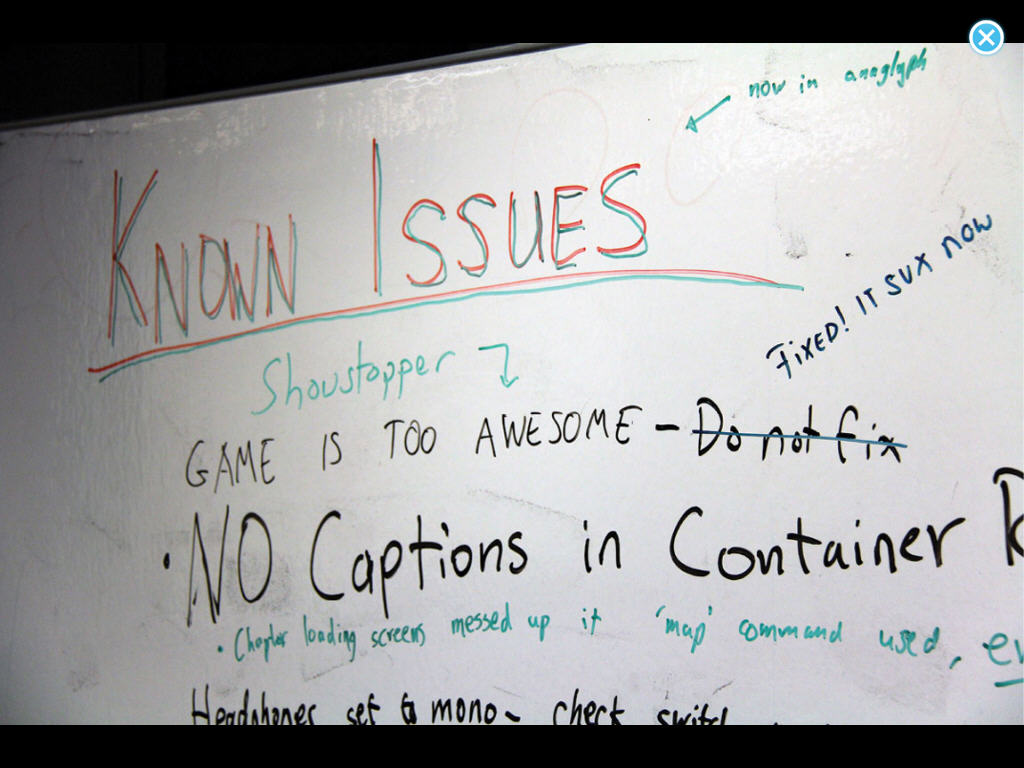 now in anaglyph
KNOWN ISSUES
FIXED! IT SUX NOW
Showstopper
GAME IS TOO AWESOME - Do not fix
• NO Captions in Container R
• Chapter loading screens messed up if 'map' command used, ev
Headphones set to mono - check switch